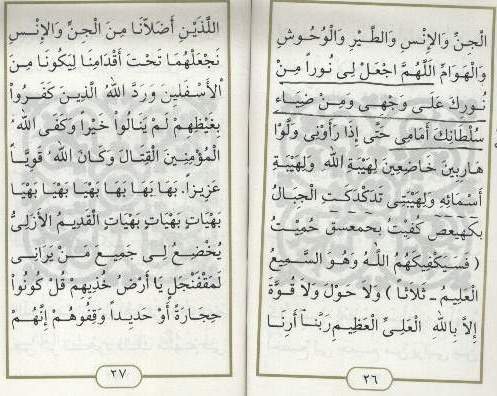 الْجِنِّ وَالْإِنْسِ وَالطَّيْرِ وَالْوُحُوشِ
وَالْهَوَامِّ اللَّهُمَّ اجْعَلْ لِى نُوراً مِنْ
نُورِكَ عَلَى وَجْهِى وَمِنْ ضِيَاءِ
سُلْطَانِكَ أَمَامِى حَتَّى إِذَا رَأَوْنِى وَلَّوْا
هَارِبِينَ خَاضِعِينَ لِهَيْبَةِ اللهِ وَلِهَيْبَةِ
أَسْمَائِهِ وَلِهَيْبَتِى تَدَكْدَكَتِ الْجِبَالُ
بكهيعص كُفِيتُ بحمعسق حُمِيتُ
( فَسَيَكْفِيكَهُمُ اللَّهُ وَهُوَ السَّمِيعُ
الْعَلِيمُ ـ ثَلَاثاً ) وَلَا حَوْلَ وَلَا قُوَّةَ
إِلَّا بِاللهِ الْعَلِىِّ الْعَظِيمِ رَبَّنَا أَرِنَا
٢٦
اللَّذَيْنِ أَضَلَّانَا مِنَ الْجِنِّ وَالْإِنْسِ
نَجْعَلْهُمَا تَحْتَ أَقْدَامِنَا لِيَكُونَا مِنَ
الْأَسْفَلِينَ وَرَدَّ اللهُ الَّذِينَ كَفَرُوا
بِغَيْظِهِمْ لَمْ يَنَالُوا خَيْراً وَكَفَى اللهُ
الْمُؤْمِنِينَ الْقِتَالَ وَكَانَ اللهُ قَوِيًّا
عَزِيزاً. بَهَا بَهَا بَهَا بَهْيَا بَهْيَا بَهْيَا
بَهْيَاتٍ بَهْيَاتٍ بَهْيَاتٍ الْقَدِيمُ الْأَزَلِىُّ
يُخْضِعُ لِى جَمِيعَ مَنْ يَرَانِى
لَمَقْفَنْجَلٍ يَا أَرْضُ خُذِيهِمْ قُلْ كُونُوا
حِجَارَةً أَوْ حَدِيداً وَقِفُوهُمْ إِنَّهُمْ
٢٧